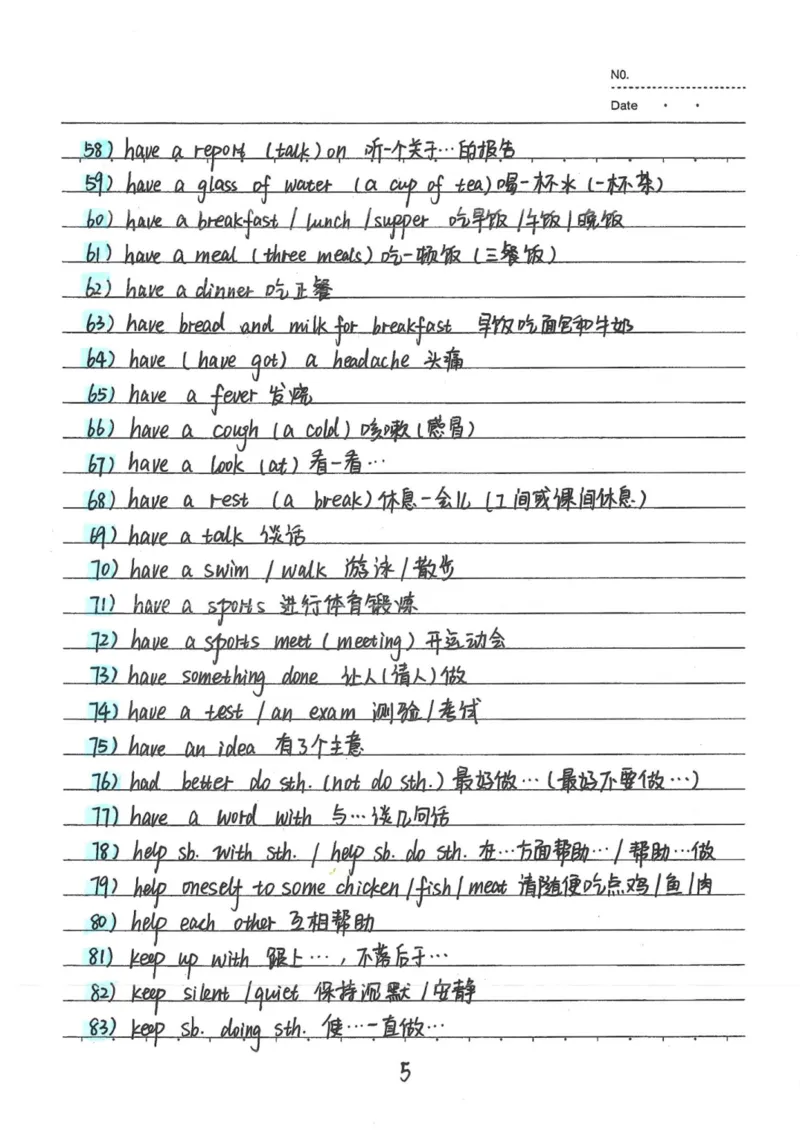 NO.
Date
58) have a report (talk) on 听一个关于…的报告
59) have a glass of water (a cup of tea) 喝一杯水 (一杯茶)
60) have a breakfast / lunch / supper 吃早饭 / 午饭 / 晚饭
61) have a meal (three meals) 吃一顿饭 (三餐饭)
62) have a dinner 吃正餐
63) have bread and milk for breakfast 早饭吃面包和牛奶
64) have (have got) a headache 头痛
65) have a fever 发烧
66) have a cough (a cold) 咳嗽 (感冒)
67) have a look (at) 看一看…
68) have a rest (a break) 休息一会儿 (工间或课间休息)
69) have a talk 谈话
70) have a swim / walk 游泳 / 散步
71) have a sports 进行体育锻炼
72) have a sports meet (meeting) 开运动会
73) have something done 让人 (请人) 做
74) have a test / an exam 测验 / 考试
75) have an idea 有了个主意
76) had better do sth. (not do sth.) 最好做… (最好不要做…)
77) have a word with 与…谈几句话
78) help sb. with sth. / help sb. do sth. 在…方面帮助… / 帮助…做
79) help oneself to some chicken / fish / meat 请随便吃点鸡 / 鱼 / 肉
80) help each other 互相帮助
81) keep up with 跟上…，不落后于…
82) keep silent / quiet 保持沉默 / 安静
83) keep sb. doing sth. 使…一直做…
5